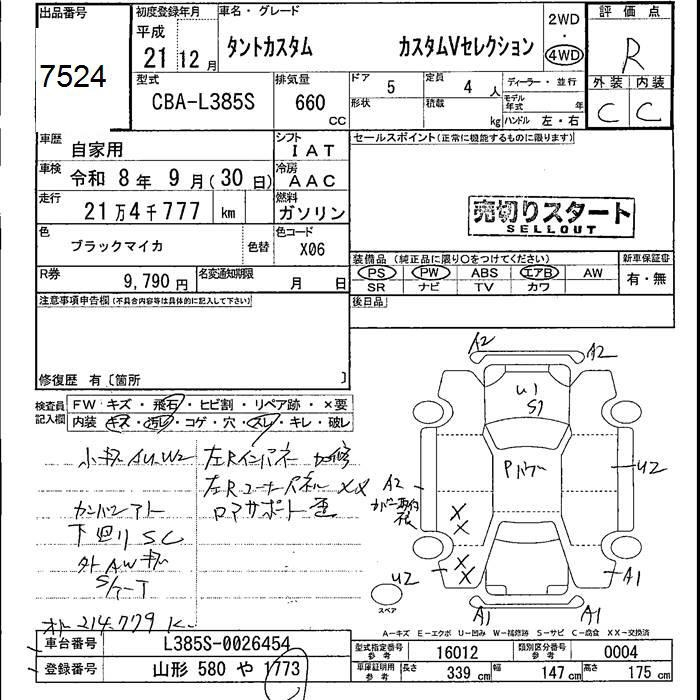 出品番号
7524
初度登録年月
平成
21 12月
車名・グレード
タントカスタム カスタムVセレクション
2WD
・
4WD
評価点
R
外装 内装
C C
型式
CBA-L385S
排気量
660
CC
ドア
5
定員
4 人
形状
積載
kg
ディーラー・並行
モデル年式 年
ハンドル 左・右
車歴
自家用
シフト
IAT
車検
令和 8年 9月(30日)
冷房
AAC
走行
21万4千777 km
燃料
ガソリン
色
ブラックマイカ
色替
色コード
X06
R券
9,790円
名変通知期限
月 日
セールスポイント(正常に機能するものに限ります)
売切りスタート
SELLOUT
装備品 (純正品に限り○をつけてください)
PS PW ABS エアB AW
SR ナビ TV カワ
新車保証書
有・無
後日品
注意事項申告欄(不具合内容等は具体的に記入して下さい)
修復歴 有〔箇所 〕
検査員
記入欄
FW キズ・飛石・ヒビ割・リペア跡・×要
内装 キズ・汚レ・コゲ・穴・スレ・キレ・破レ
小キズ AU W2
左Rインパネ
左Rコーナーパネル XX
ロアサポート 歪
下回り SC
外AWキズ
オドー214.779K
A2
A2
U1
S1
Pパワー
A2
U2
X
X
X
X
U2
スペア
A1
A1
A1
A-キズ E-エクボ U-凹み W-補修跡 S-サビ C-腐食 XX-交換済
車台番号
L385S-0026454
登録番号
山形 580 や 1773
型式指定番号
参考
16012
類別区分番号
参考
0004
車庫証明用
参考
長さ 339 cm 幅 147 cm 高さ 175 cm